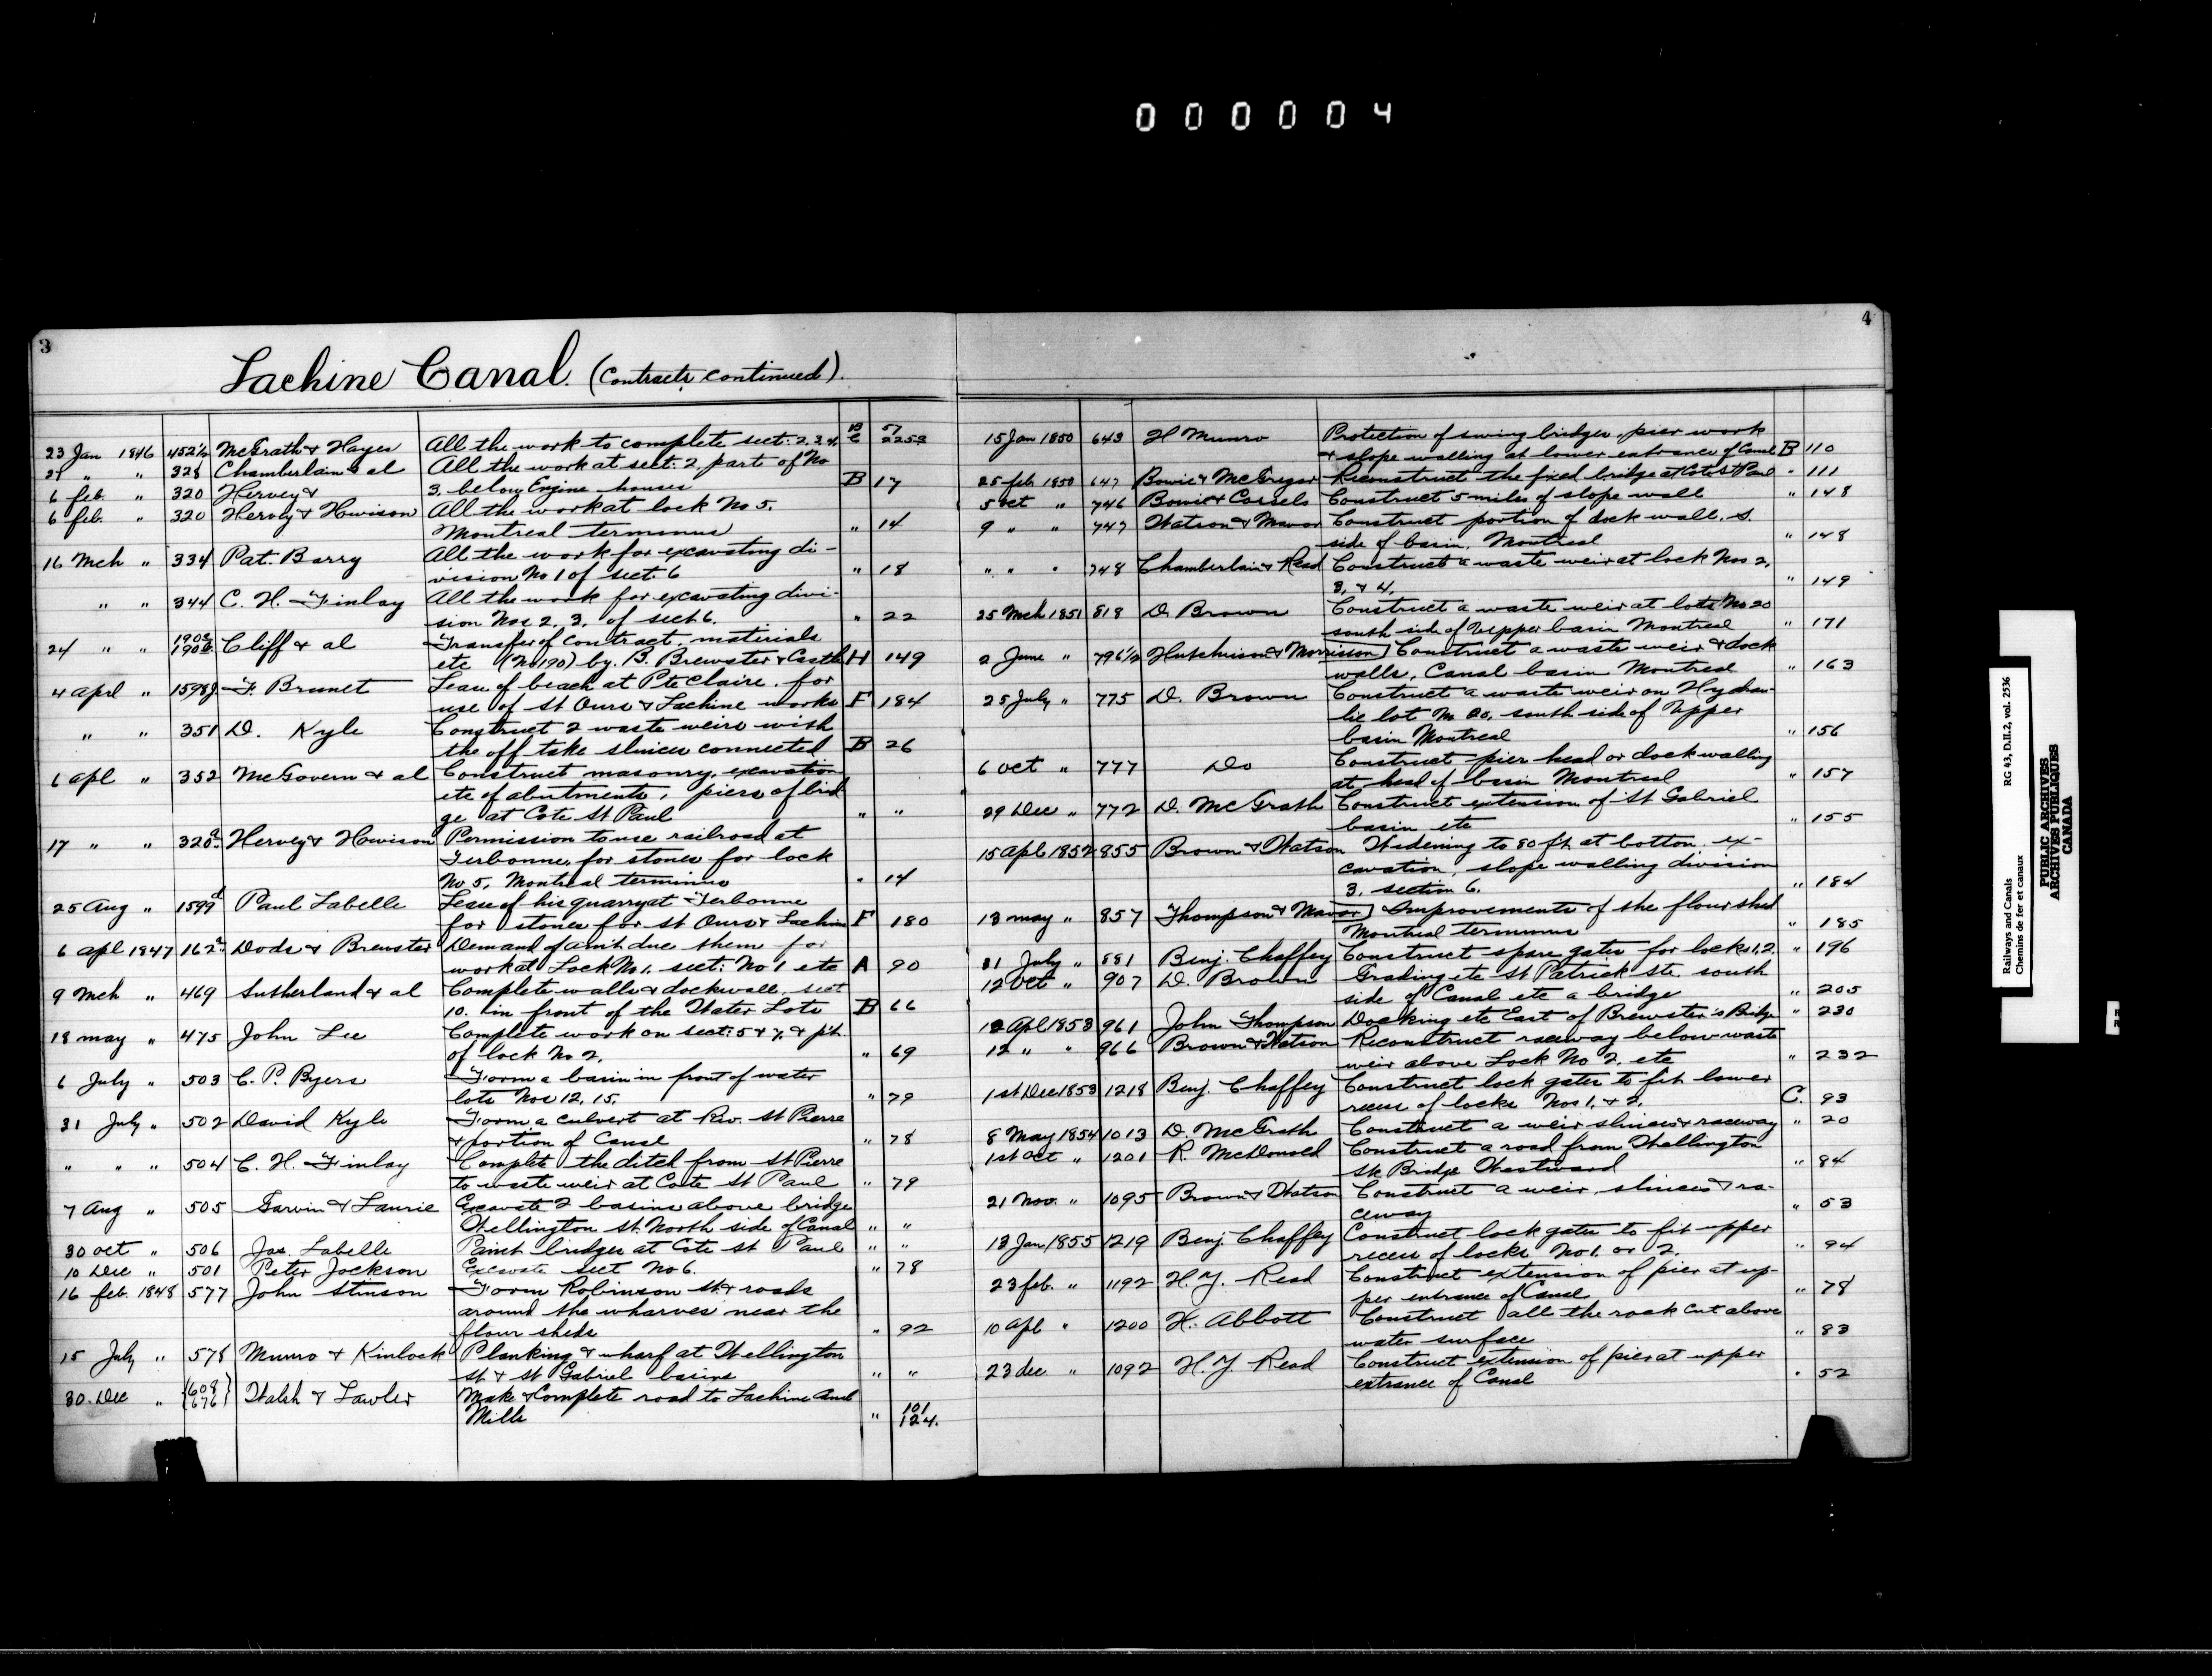 000004
3
Lachine Canal. (Contracts continued).
23 Jan 1846 452½ McGrath & Hayes All the work to complete sect: 2.3.4. B 57
C 2253
29 " " 328 Chamberlain & al All the work at sect: 2, part of No
6 feb. " 320 Hervey & 3. below Engine houses B 17
6 feb. " 320 Hervey & Howison All the work at lock No 5.
Montreal terminus " 14
16 Mch " 334 Pat. Barry All the work for excavating di-
vision No 1 of sect. 6 " 18
" " 344 C. H. Finlay All the work for excavating divi-
sion Nos 2. 3. of sect 6. " 22
24 " " Cliff & al Transfer of contract, materials
etc (No 190) by B. Brewster & Castle H 149
4 aprl " 1598 J. F. Brunet Lease of beach at Pte Claire, for
use of St Ours & Lachine works F 184
" " 351 D. Kyle Construct 2 waste weirs with
the off take sluices connected B 26
6 apl " 352 McGovern & al Construct masonry, excavation
etc of abutments, piers of brid
ge at Cote St Paul " "
17 " " 320a Hervey & Howison Permission to use railroad at
Terbonne, for stones for lock
No 5, Montreal terminus " 14
25 Aug " 1599d Paul Labelle Lease of his quarry at Terbonne
for stones for St Ours & Lachine F 180
6 apl 1847 162a Dods & Brewster Demand of am't due them for
work at Lock No 1. sect: No 1 etc A 90
9 Mch " 469 Sutherland & al Complete walls & dockwall, sect
10. in front of the Water Lots B 66
18 may " 475 John Lee Complete work on sect: 5 & 7, & pit
of lock No 2. " 69
6 July " 503 C. P. Byers Form a basin in front of water
lots Nos 12, 15. " 79
31 July " 502 David Kyle Form a culvert at Riv. St Pierre
& portion of Canal " 78
" " " 504 C. H. Finlay Complete the ditch from St Pierre
to waste weir at Cote St Paul " 79
7 Aug " 505 Garvin & Laurie Excavate 2 basins above bridge
Wellington St. North side of Canal " "
30 oct " 506 Jos. Labelle Paint bridges at Cote St Paul " "
10 Dec " 501 Peter Jackson Excavate sect No 6. " 78
16 feb. 1848 577 John Stinson Form Robinson St & roads
around the wharves near the
flour sheds " 92
15 July " 578 Munro & Kinlock Planking & wharf at Wellington
St & St Gabriel basins " "
30. Dec " {609 676} Walsh & Lawler Make & Complete road to Lachine and
Mills " 101
124.
4
15 Jan 1850 643 H Munro Protection of swing bridges, pier work
& slope walling at lower entrance of Canal B 110
25 feb 1850 647 Bowie & McGregor Reconstruct the fixed bridge at Cote St Paul " 111
5 oct " 746 Bowie & Cassels Construct 5 miles of slope wall " 148
9 " " 747 Watson & Mavor Construct portion of dock wall, S.
side of basin, Montreal " 148
" " " 748 Chamberlain & Read Construct a waste weir at lock Nos 2,
3, & 4, " 149
25 Mch 1851 818 D. Brown Construct a waste weir at lots No 20
south side of Upper basin Montreal " 171
2 June " 796½ Hutchison & Morrison] Construct a waste weir & dock
walls, Canal basin Montreal " 163
25 July " 775 D. Brown Construct a waste weir on Hydrau-
lic lot No 20, south side of Upper
basin Montreal " 156
6 oct " 777 Do Construct pier head or dock walling
at head of basin Montreal " 157
29 Dec " 772 D. McGrath Construct extension of St Gabriel
basin etc " 155
15 apl 1852 855 Brown & Watson Widening to 80 ft, at bottom ex-
cavation, slope walling division
3, section 6. " 184
13 may " 857 Thompson & Mavor] Improvements of the flour shed
Montreal terminus " 185
31 July " 881 Benj. Chaffey Construct spare gates for locks 1, 2. " 196
12 oct " 907 D. Brown Grading etc St Patrick Ste. south
side of Canal etc a bridge " 205
12 Apl 1853 961 John Thompson Docking etc East of Brewster's Bridge " 230
12 " " 966 Brown & Watson Reconstruct raceway below waste
weir above Lock No 2. etc " 232
1st Dec 1853 1218 Benj. Chaffey Construct lock gates to fit lower
recess of locks Nos 1, & 2. C. 93
8 May 1854 1013 D. McGrath Construct a weir sluices & raceway " 20
1st oct " 1201 R. McDonald Construct a road from Wellington
St. Bridge Westward " 84
21 Nov. " 1095 Brown & Watson Construct a weir, sluices & ra-
ceway " 53
13 Jan 1855 1219 Benj. Chaffey Construct lock gates to fit upper
recess of locks No 1. or 2. " 94
23 feb. " 1192 H. Y. Read Construct extension of pier at up-
per entrance of Canal " 78
10 apl " 1200 H. Abbott Construct all the rock cut above
water surface " 83
23 dec " 1092 H. Y. Read Construct extension of pier at upper
extrance of Canal " 52
Railways and Canals RG 43, D.II.2, vol. 2536
Chemins de fer et canaux
PUBLIC ARCHIVES
ARCHIVES PUBLIQUES
CANADA